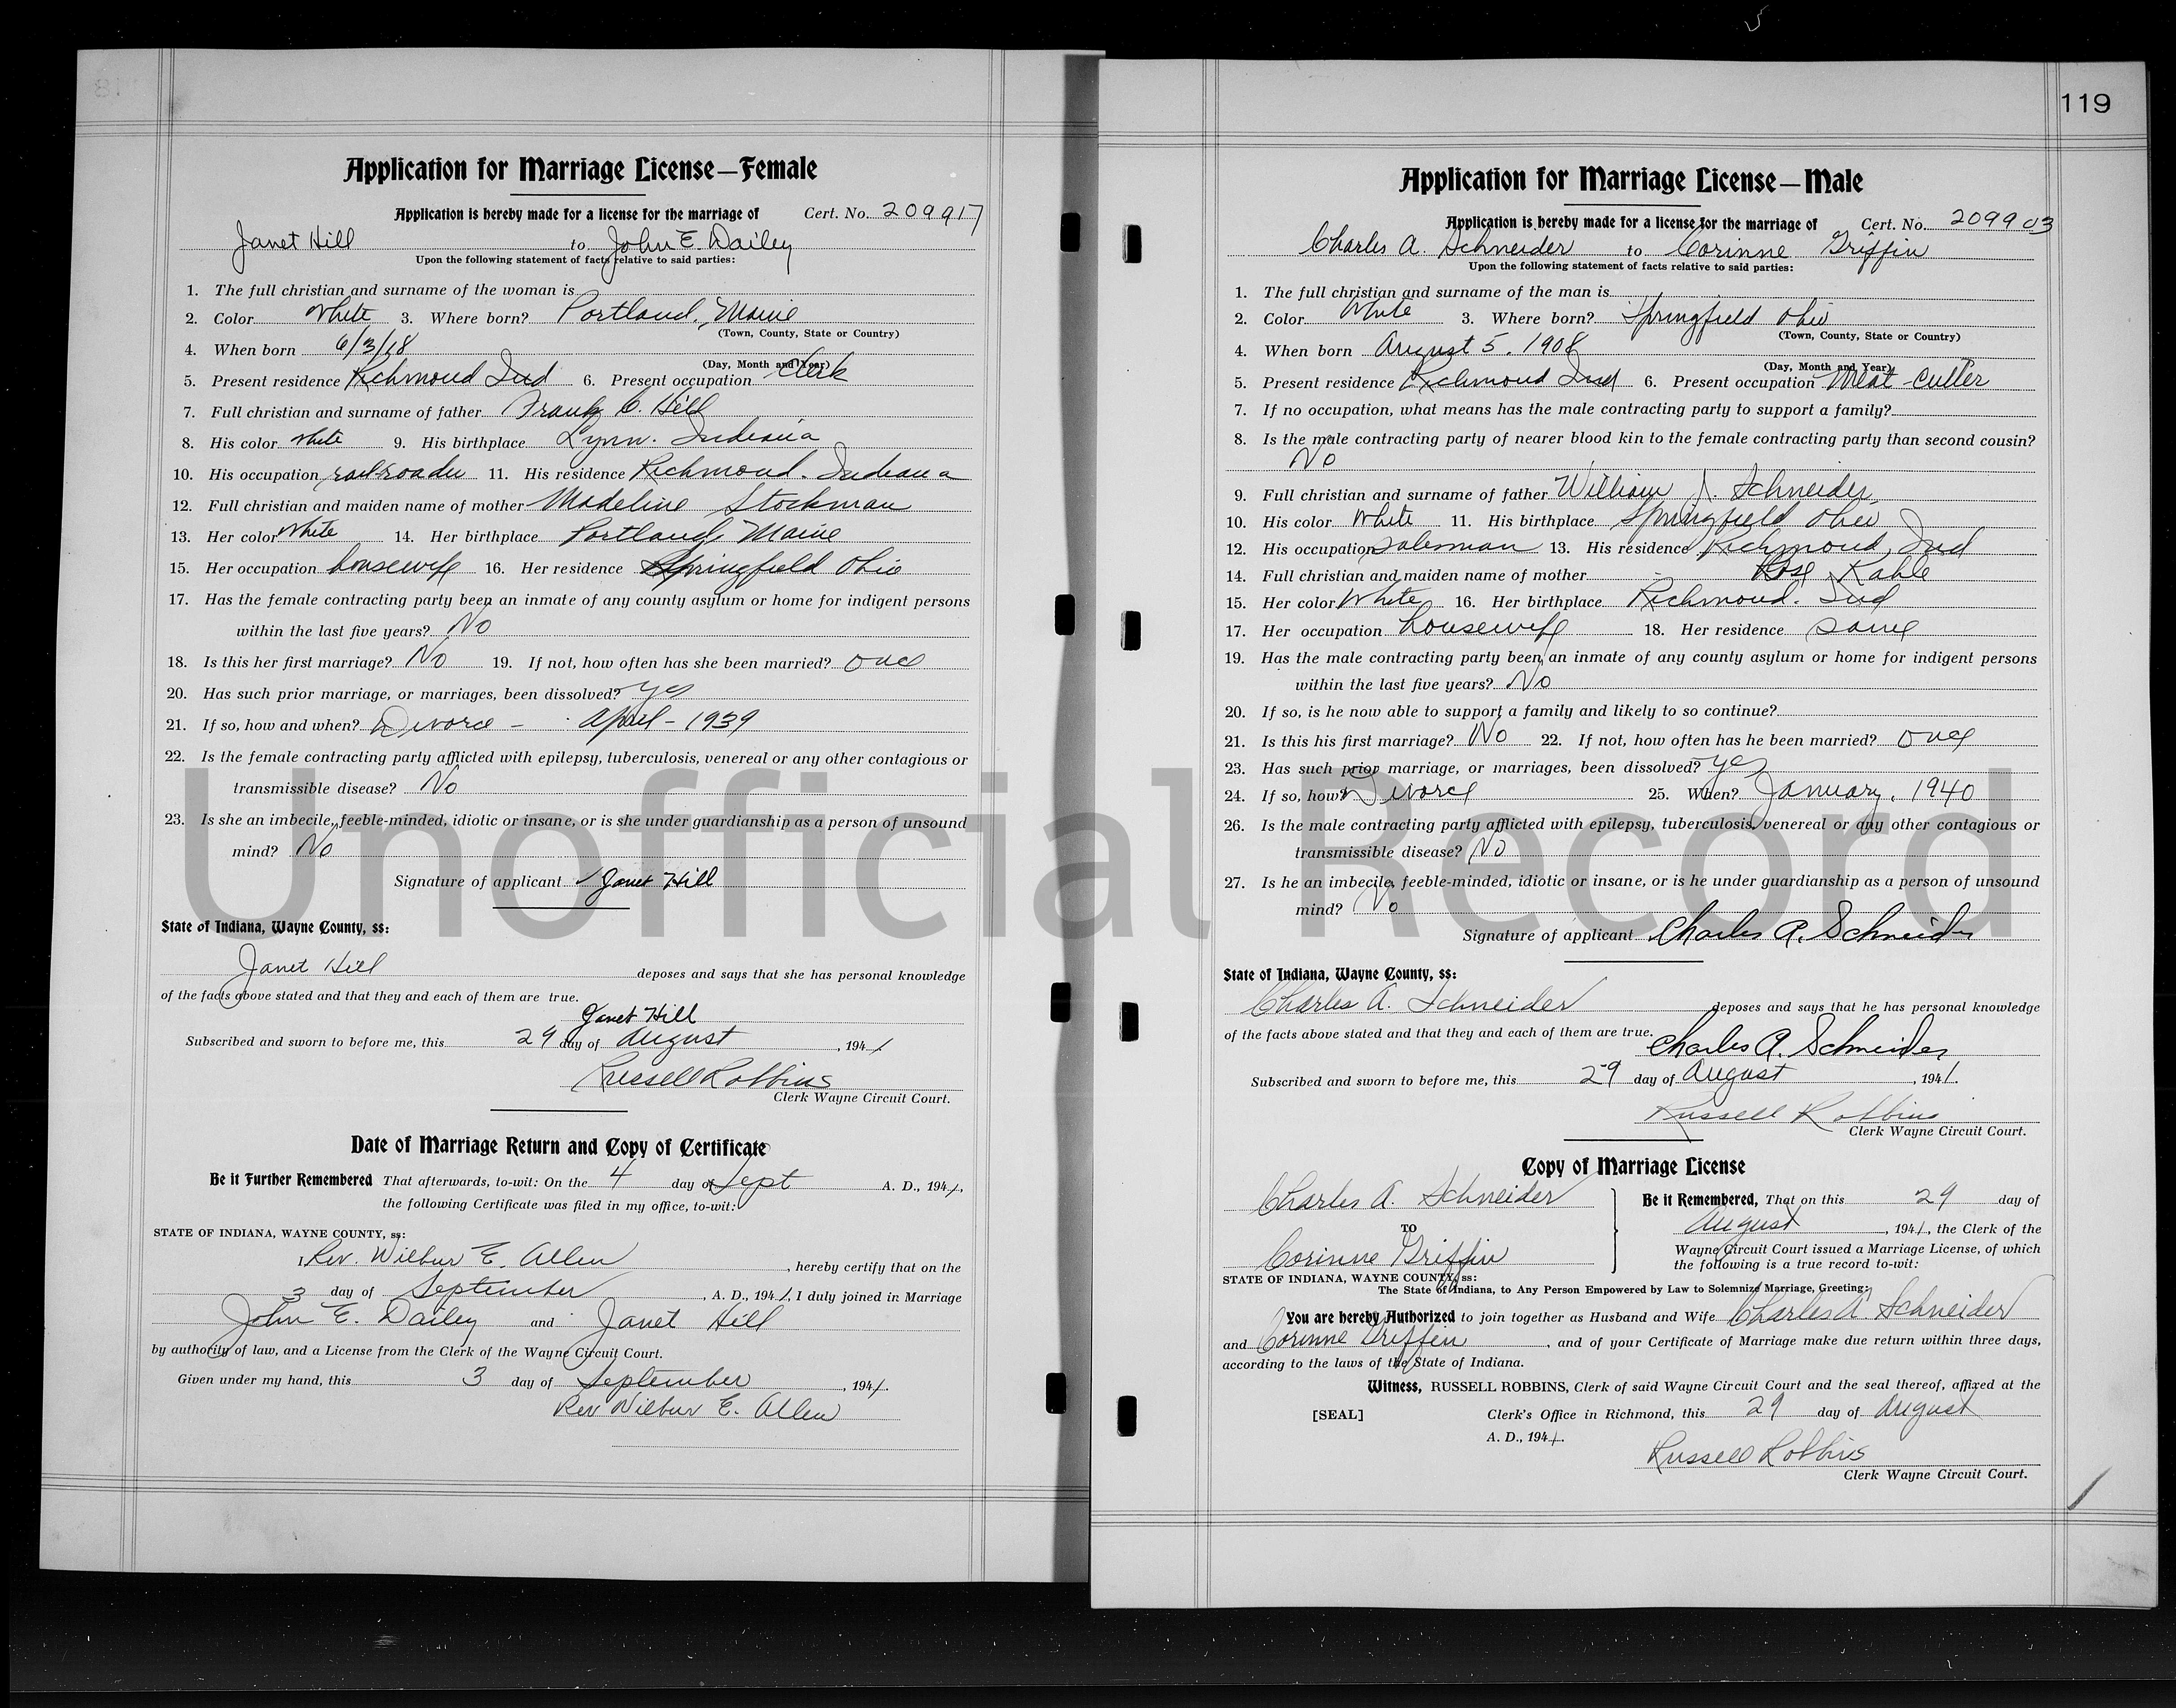 Application for Marriage License—Female
Application is hereby made for a license for the marriage of Cert. No. 209917
Janet Hill to John E. Dailey
Upon the following statement of facts relative to said parties:
1. The full christian and surname of the woman is
2. Color White 3. Where born? Portland, Maine
(Town, County, State or Country)
4. When born 6/3/18
(Day, Month and Year)
5. Present residence Richmond Ind 6. Present occupation Clerk
7. Full christian and surname of father Frank C. Hill
8. His color White 9. His birthplace Lynn. Indiana
10. His occupation railroader 11. His residence Richmond. Indiana
12. Full christian and maiden name of mother Madeline Stockman
13. Her color White 14. Her birthplace Portland, Maine
15. Her occupation housewife 16. Her residence Springfield Ohio
17. Has the female contracting party been an inmate of any county asylum or home for indigent persons
within the last five years? No
18. Is this her first marriage? No 19. If not, how often has she been married? one
20. Has such prior marriage, or marriages, been dissolved? yes
21. If so, how and when? Divorce - April - 1939
22. Is the female contracting party afflicted with epilepsy, tuberculosis, venereal or any other contagious or
transmissible disease? No
23. Is she an imbecile, feeble-minded, idiotic or insane, or is she under guardianship as a person of unsound
mind? No
Signature of applicant Janet Hill
State of Indiana, Wayne County, ss:
Janet Hill deposes and says that she has personal knowledge
of the facts above stated and that they and each of them are true.
Janet Hill
Subscribed and sworn to before me, this 29 day of August, 1941
Russell Robbins
Clerk Wayne Circuit Court.
Date of Marriage Return and Copy of Certificate
Be it Further Remembered That afterwards, to-wit: On the 4 day of Sept A. D., 1941,
the following Certificate was filed in my office, to-wit:
STATE OF INDIANA, WAYNE COUNTY, ss:
I, Rev. Wilbur E. Allen, hereby certify that on the
3 day of September, A. D., 1941, I duly joined in Marriage
John E. Dailey and Janet Hill
by authority of law, and a License from the Clerk of the Wayne Circuit Court.
Given under my hand, this 3 day of September, 1941.
Rev Wilbur E. Allen
119
Application for Marriage License—Male
Application is hereby made for a license for the marriage of Cert. No. 209903
Charles A. Schneider to Corinne Griffin
Upon the following statement of facts relative to said parties:
1. The full christian and surname of the man is
2. Color White 3. Where born? Springfield Ohio
(Town, County, State or Country)
4. When born August 5. 1908
(Day, Month and Year)
5. Present residence Richmond Ind 6. Present occupation Meat-cutter
7. If no occupation, what means has the male contracting party to support a family?
8. Is the male contracting party of nearer blood kin to the female contracting party than second cousin?
No
9. Full christian and surname of father William J. Schneider
10. His color White 11. His birthplace Springfield Ohio
12. His occupation salesman 13. His residence Richmond, Ind
14. Full christian and maiden name of mother Rose Kahle
15. Her color White 16. Her birthplace Richmond. Ind
17. Her occupation housewife 18. Her residence same
19. Has the male contracting party been an inmate of any county asylum or home for indigent persons
within the last five years? No
20. If so, is he now able to support a family and likely to so continue?
21. Is this his first marriage? No 22. If not, how often has he been married? one
23. Has such prior marriage, or marriages, been dissolved? yes
24. If so, how? Divorce 25. When? January, 1940
26. Is the male contracting party afflicted with epilepsy, tuberculosis, venereal or any other contagious or
transmissible disease? No
27. Is he an imbecile, feeble-minded, idiotic or insane, or is he under guardianship as a person of unsound
mind? No
Signature of applicant Charles A. Schneider
State of Indiana, Wayne County, ss:
Charles A. Schneider deposes and says that he has personal knowledge
of the facts above stated and that they and each of them are true.
Charles A. Schneider
Subscribed and sworn to before me, this 29 day of August, 1941.
Russell Robbins
Clerk Wayne Circuit Court.
Copy of Marriage License
Charles A. Schneider
TO
Corinne Griffin
Be it Remembered, That on this 29 day of
August, 1941, the Clerk of the
Wayne Circuit Court issued a Marriage License, of which
the following is a true record to-wit:
STATE OF INDIANA, WAYNE COUNTY, ss:
The State of Indiana, to Any Person Empowered by Law to Solemnize Marriage, Greeting:
You are hereby Authorized to join together as Husband and Wife Charles A. Schneider
and Corinne Griffin, and of your Certificate of Marriage make due return within three days,
according to the laws of the State of Indiana.
Witness, RUSSELL ROBBINS, Clerk of said Wayne Circuit Court and the seal thereof, affixed at the
[SEAL] Clerk's Office in Richmond, this 29 day of August
A. D., 1941.
Russell Robbins
Clerk Wayne Circuit Court.
Unofficial Record